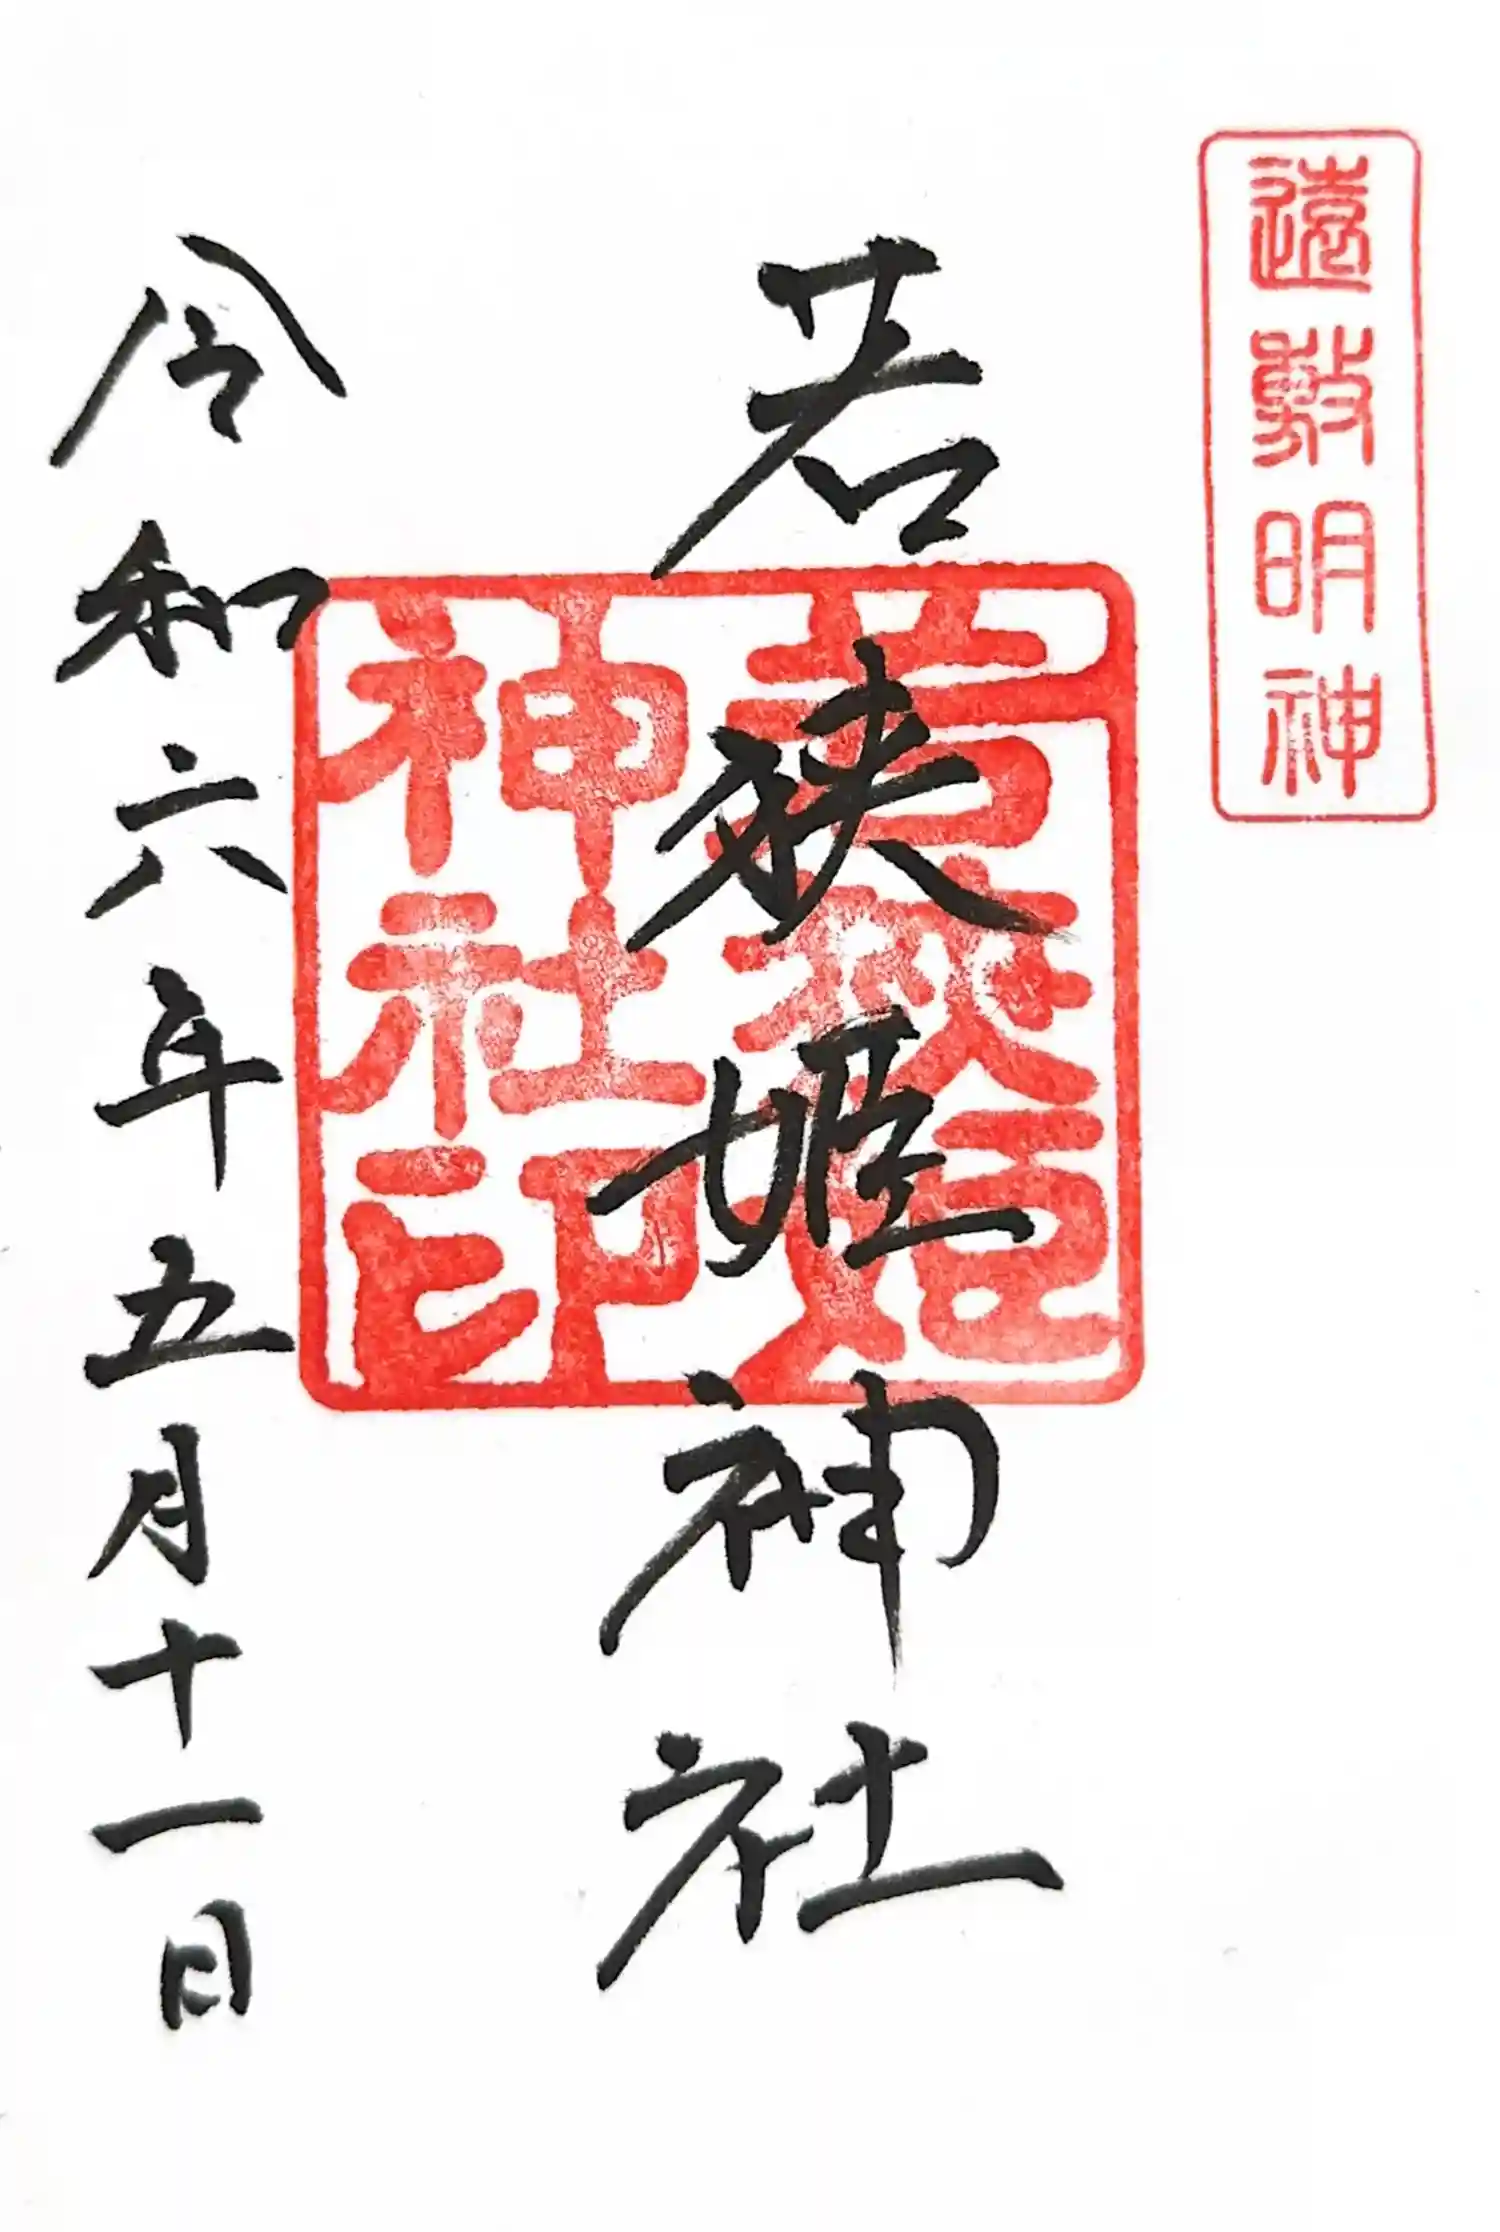 遠敷明神
若狭姫神社
若狭姫
神社印
令和六年五月十一日